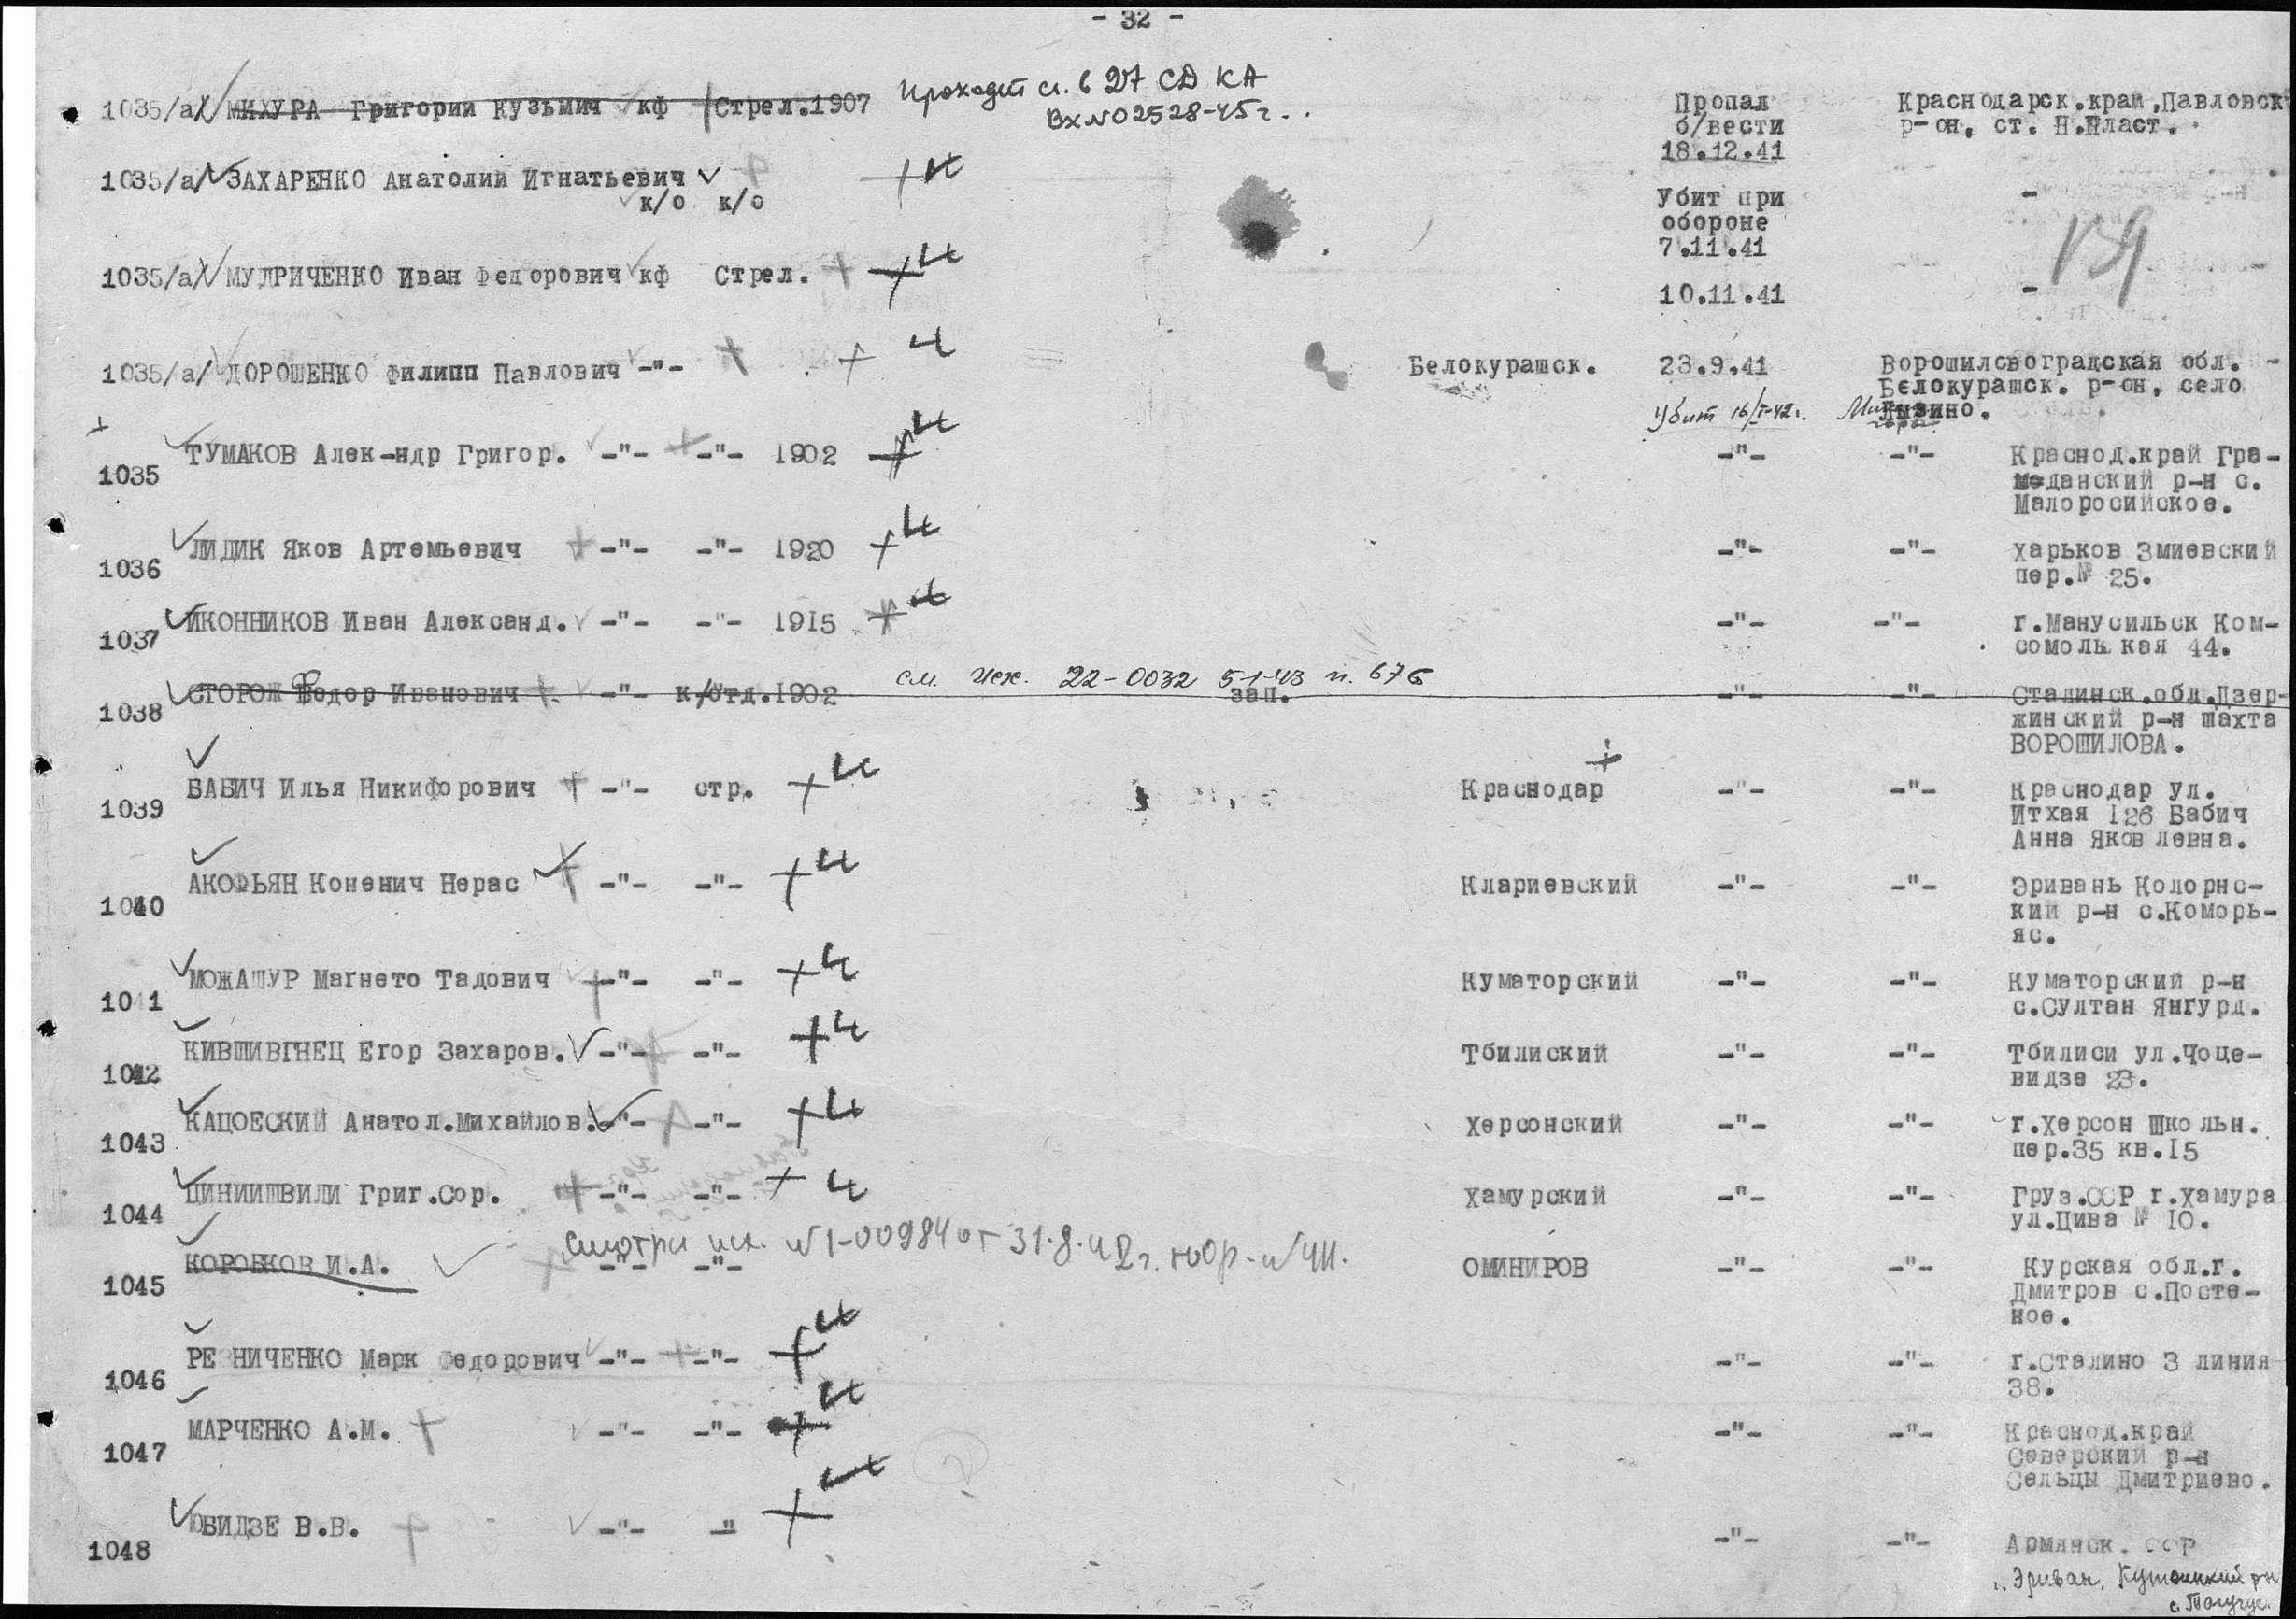 - 32 -
1035/а/ МИХУРА Григорий Кузьмич кф Стрел.1907 Проходит сп. в 27 СД КА Пропал Краснодарск.край,Павловск
Вх №02528-45г. б/вести р-он, ст. Н.Пласт.
18.12.41
1035/а/ ЗАХАРЕНКО Анатолий Игнатьевич
к/о к/о Убит при -
обороне
7.11.41
1035/а/ МУДРИЧЕНКО Иван Федорович кф Стрел. 10.11.41 -
1035/а/ ДОРОШЕНКО Филипп Павлович -"- Белокурашск. 23.9.41 Ворошиловоградская обл. -
Белокурашск. р-он, село
Убит 16/I-42г. Лызино.
1035 ТУМАКОВ Алек-ндр Григор. -"- -"- 1902 -"- -"- Краснод.край Гра-
меданский р-н с.
Малоросийское.
1036 ЛИДИК Яков Артемьевич -"- -"- 1920 -"- -"- Харьков Змиевский
пер.№ 25.
1037 ИКОННИКОВ Иван Александ. -"- -"- 1915 -"- -"- г.Манусильск Ком-
сомоль кая 44.
см. исх. 22-0032 5-1-43 п. 676
1038 СТОРОЖ Федор Иванович -"- к/отд.1902 зап. -"- -"- Сталинск.обл.Дзер-
жинский р-н шахта
ВОРОШИЛОВА.
1039 БАБИЧ Илья Никифорович -"- стр. Краснодар -"- -"- Краснодар ул.
Итхая 126 Бабич
Анна Яковлевна.
1040 АКОФЬЯН Коненич Нерас -"- -"- Клариевский -"- -"- Эривань Колорнс-
кий р-н с.Коморь-
яс.
1041 МОЖАШУР Магнето Тадович -"- -"- Куматорский -"- -"- Куматорский р-н
с.Султан Янгурд.
1042 КИВШИВГНЕЦ Егор Захаров. -"- -"- Тбилиский -"- -"- Тбилиси ул.Чоце-
видзе 23.
1043 КАЦОЕСКИЙ Анатол.Михайлов. -"- -"- Херсонский -"- -"- г.Херсон Школьн.
пер.35 кв.15
1044 ЦИНИИШВИЛИ Григ.Сор. -"- -"- Хамурский -"- -"- Груз.ССР г.Хамура
ул.Цива № 10.
Смотри исх. №1-00984 от 31.8.42г.
1045 КОРОБКОВ И.А. -"- -"- ОМИНИРОВ -"- -"- Курская обл.г.
Дмитров с.Посте-
ное.
1046 РЕЗНИЧЕНКО Марк Федорович -"- -"- -"- -"- г.Сталино 3 линия
38.
1047 МАРЧЕНКО А.М. -"- -"- -"- -"- Краснод.край
Северский р-н
Сельцы Дмитриево.
1048 ЮБИДЗЕ В.В. -"- -"- -"- -"- Армянск. ССР
Эриван.